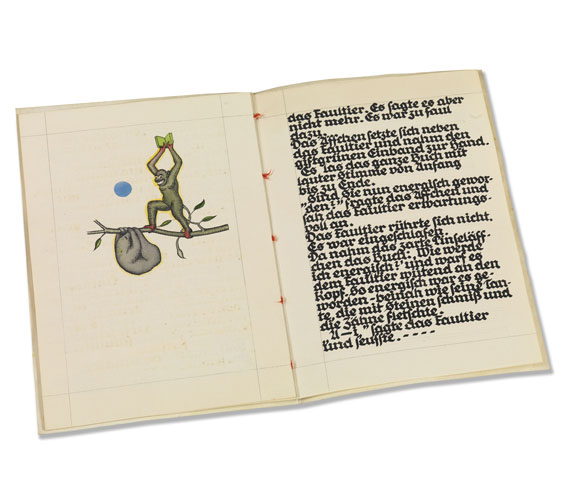 das Faultier. Es sagte es aber
nicht mehr. Es war zu faul
dazu.
Das Äffchen setzte sich neben
das Faultier und nahm den
giftgrünen Einband zur Hand.
Es las das ganze Buch mit
lauter Stimme von Anfang
bis zu Ende.
„Sind Sie nun energisch gewor-
den?" fragte das Äffchen und
sah das Faultier erwartungs-
voll an.
Das Faultier rührte sich nicht.
Es war eingeschlafen.
Da nahm das zarte Pinseläff-
chen das Buch: „Wie werde
ich energisch?" und warf es
dem Faultier wütend an den
Kopf. So energisch war es ge-
worden - beinah wie seine Tan-
te, die mit Steinen schmiß und
die Zähne fletschte.
"A-i" sagte das Faultier
und seufzte. - - - -